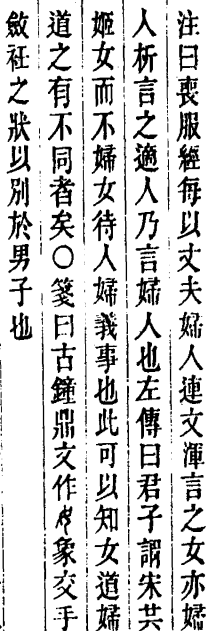 注曰喪服經每以丈夫婦人連文渾言之女亦婦
人析言之適人乃言婦人也左傳曰君子謂宋共
姬女而不婦女待人婦義事也此可以知女道婦
道之有不同者矣〇箋曰古鐘鼎文作象交手
斂衽之狀以別於男子也